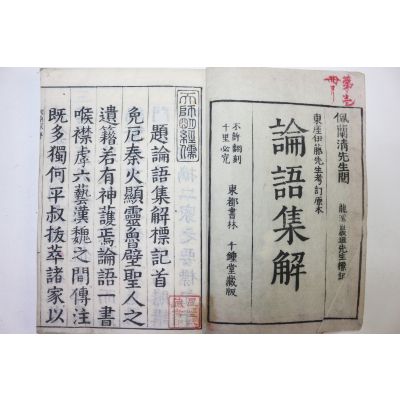 佩蘭清先生閱
東崖伊藤先生考訂原本
論語集解
不許翻刻
千里必究
東都書林 千鍾堂藏版
題論語集解標記首
免厄秦火顯靈魯壁聖人之
遺籍若有神護焉論語一書
喉襟虖六藝漢魏之間傳注
既多獨何平叔拔萃諸家以